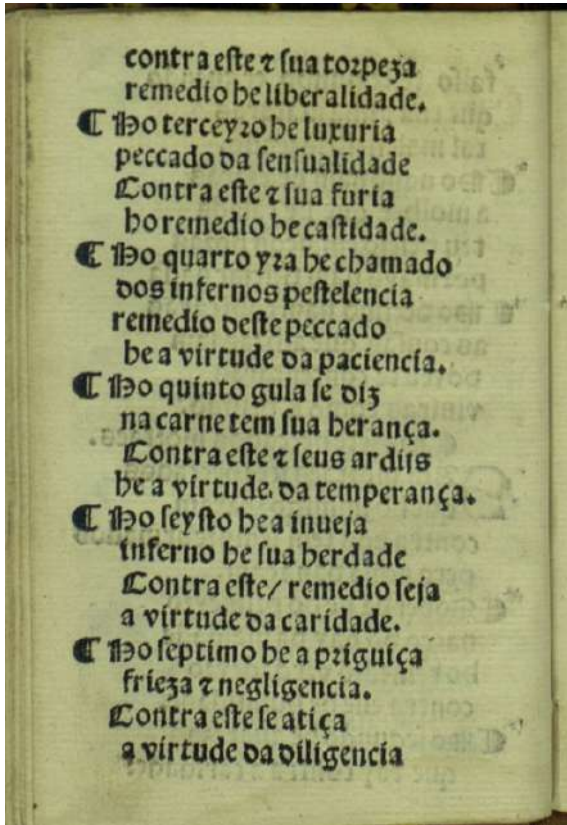 contra este ⁊ sua torpeza
remedio he liberalidade.
¶ Ho terceyro he luxuria
peccado da sensualidade
Contra este ⁊ sua furia
ho remedio he castidade.
¶ Ho quarto yra he chamado
dos infernos pestelencia
remedio deste peccado
he a virtude da paciencia.
¶ Ho quinto gula se diz
na carne tem sua herança.
Contra este ⁊ seus ardijs
he a virtude da temperança.
¶ Ho seysto he a inueja
inferno he sua herdade
Contra este/ remedio seja
a virtude da caridade.
¶ Ho septimo he a priguiça
frieza ⁊ negligencia.
Contra este se atiça
a virtude da diligencia